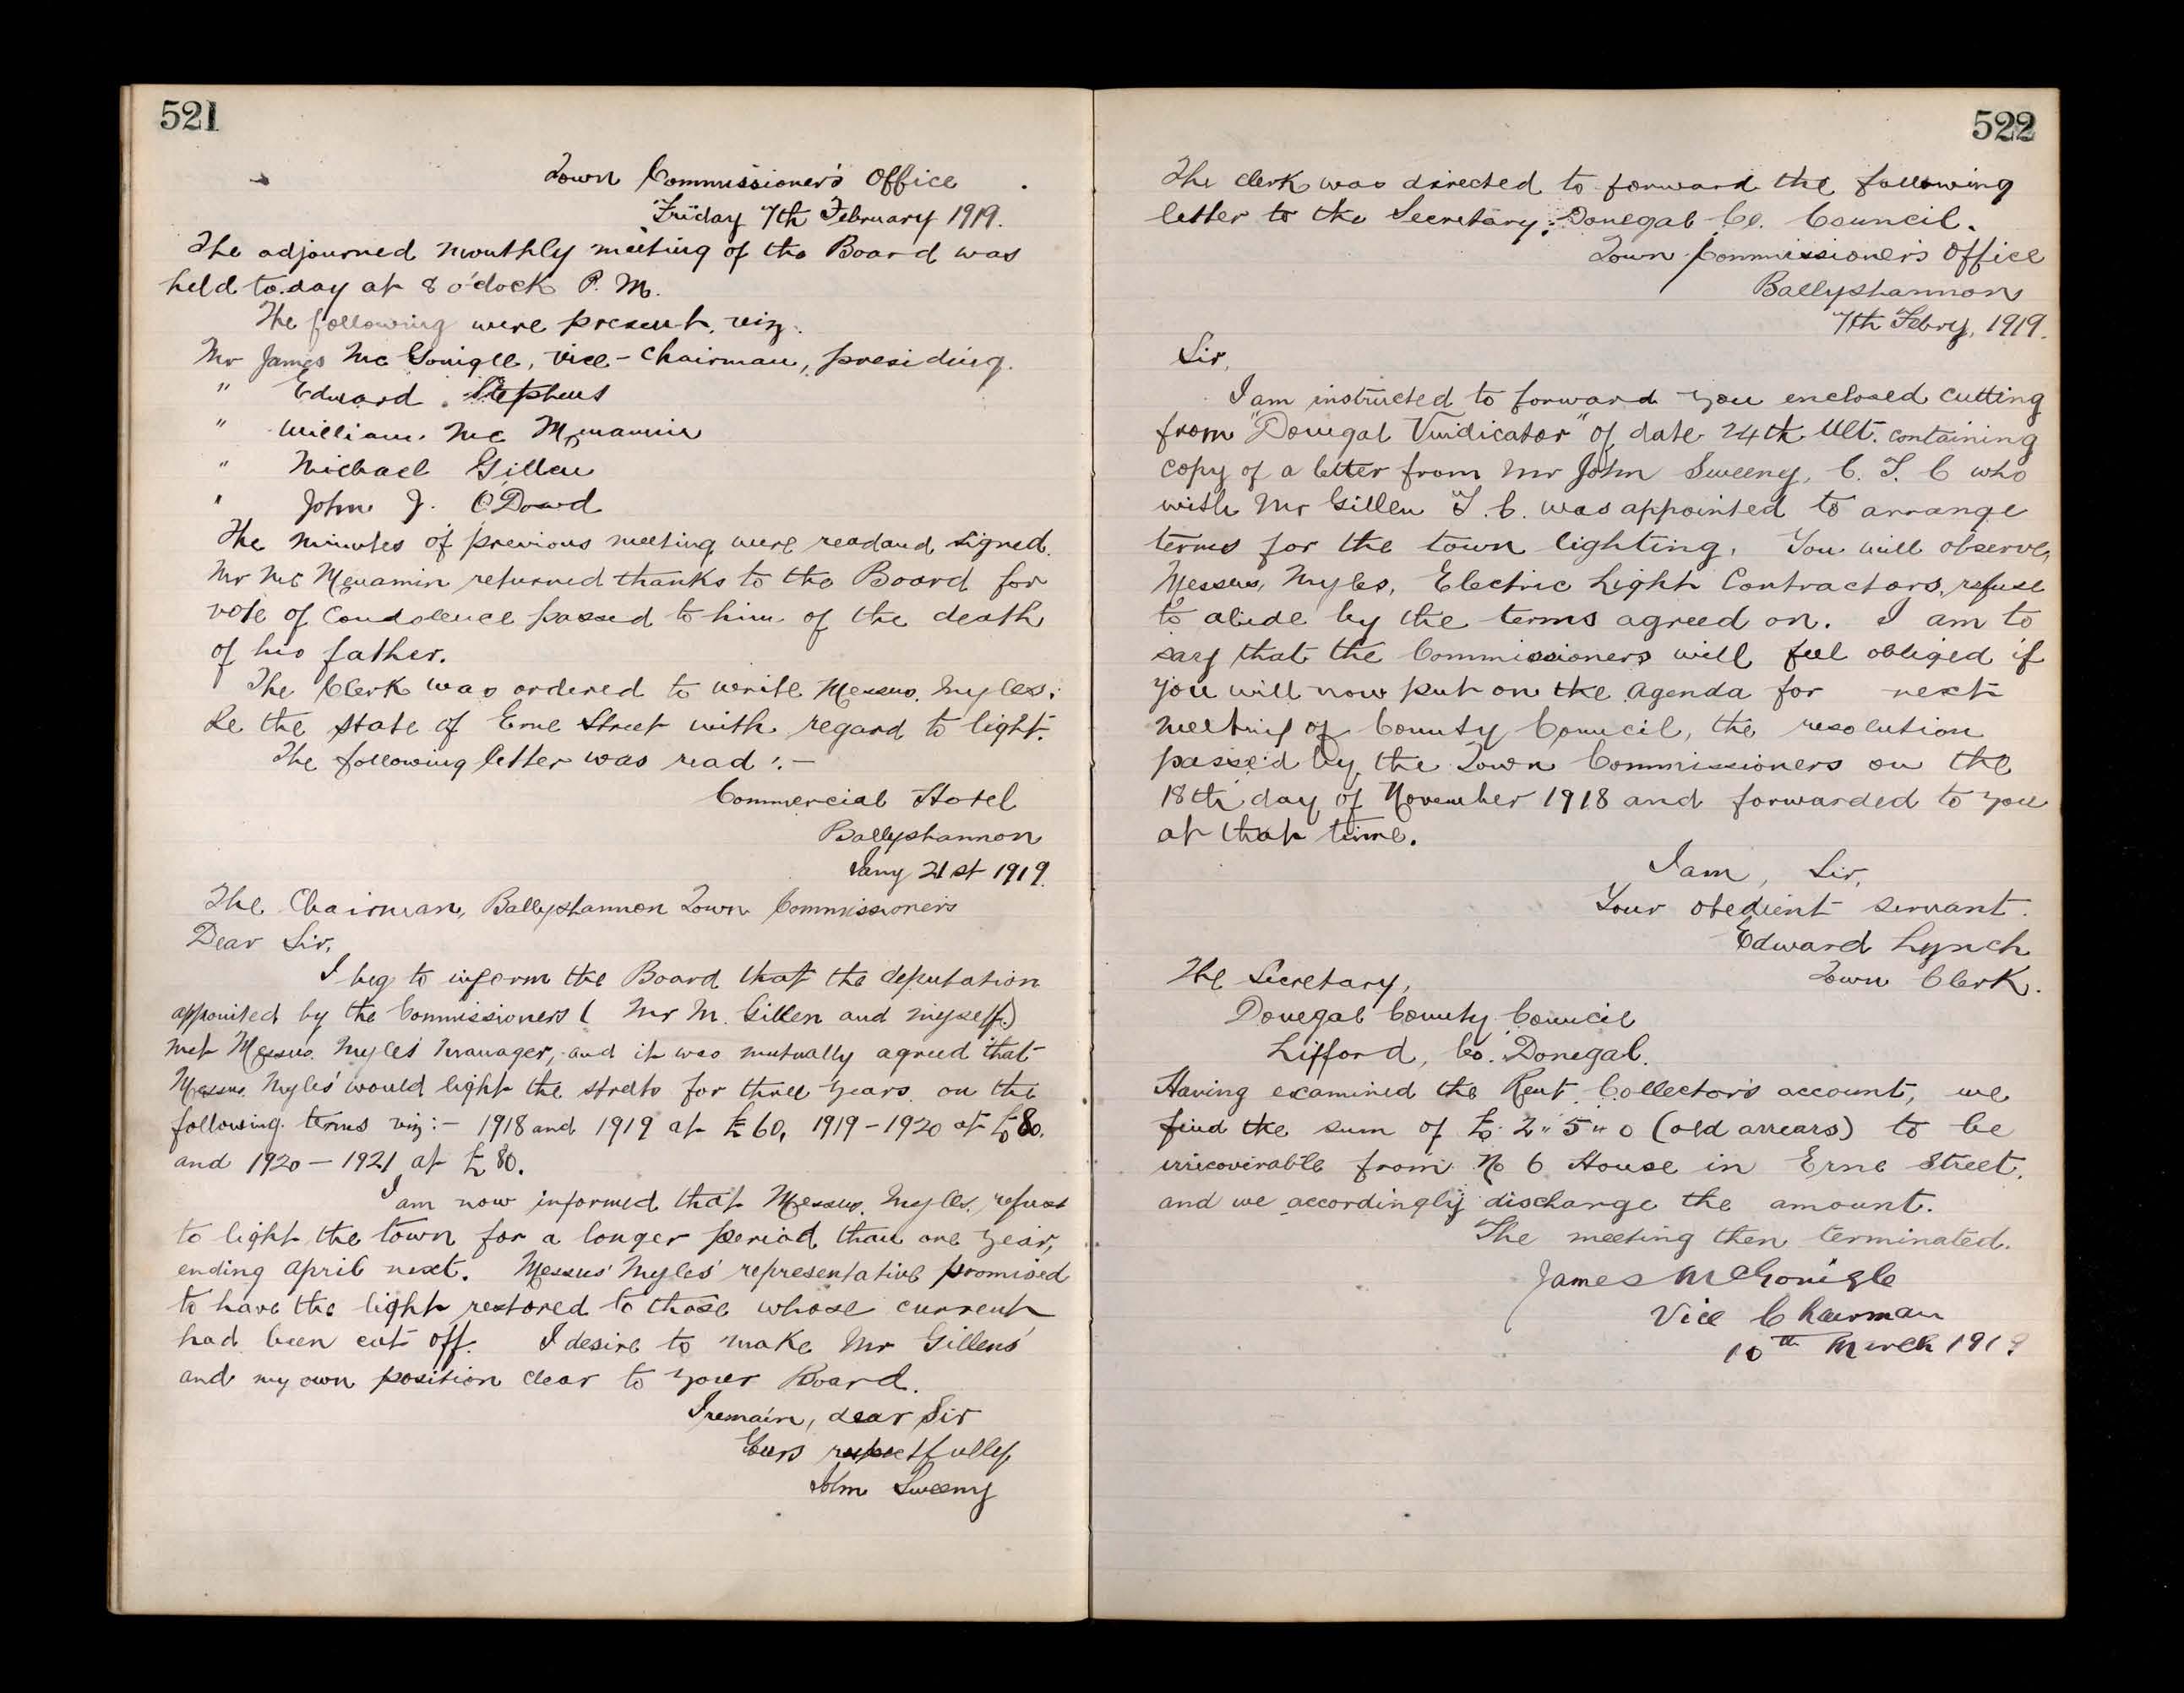 521
Town Commissioner's Office
Friday 7th February 1919.
The adjourned monthly meeting of the Board was
held to.day at 8 o'clock P. M.
The following were present, viz:
Mr James Mc Gonigle, Vice-Chairman, presiding.
" Edward Stephens
" William Mc Menamin
" Michael Gillen
" John J. O'Dowd
The minutes of previous meeting were read and signed.
Mr Mc Menamin returned thanks to the Board for
vote of Condolence passed to him of the death
of his father.
The Clerk was ordered to write Messrs. Myles.
Re the state of Erne Street with regard to light.
The following letter was read :-
Commercial Hotel
Ballyshannon
Jany 21st 1919.
The Chairman, Ballyshannon Town Commissioners
Dear Sir,
I beg to inform the Board that the deputation
appointed by the Commissioners ( Mr M. Gillen and myself.)
met Messrs. Myles' Manager, and it was mutually agreed that
Messrs. Myles' would light the streets for three years on the
following terms viz:- 1918 and 1919 at £60, 1919-1920 at £80.
and 1920-1921 at £80.
I am now informed that Messrs. Myles, refuse
to light the town for a longer period than one year,
ending April next. Messrs' Myles' representative promised
to have the light restored to those whose current
had been cut off. I desire to make Mr Gillens'
and my own position clear to your Board.
I remain, dear Sir
Yours respectfully
John Sweeny
522
The clerk was directed to forward the following
letter to the Secretary, Donegal Co. Council.
Town Commissioner's Office
Ballyshannon
7th Febry, 1919.
Sir,
I am instructed to forward you enclosed cutting
from "Donegal Vindicator" of date 24th Ult. containing
copy of a letter from Mr John Sweeny, C. T. C who
with Mr Gillen T. C. was appointed to arrange
terms for the town lighting. You will observe,
Messrs, Myles, Electric Light Contractors, refuse
to abide by the terms agreed on. I am to
say that the Commissioners will feel obliged if
you will now put on the Agenda for next
meeting of County Council, the resolution
passed by the Town Commissioners on the
18th day of November 1918 and forwarded to you
at that time.
I am, Sir,
Your obedient servant.
Edward Lynch
Town Clerk.
The Secretary,
Donegal County Council
Lifford, Co. Donegal.
Having examined the Rent Collector's account, we
find the sum of £2"5"0 (old arrears) to be
irrecoverable from No 6 House in Erne Street,
and we accordingly discharge the amount.
The meeting then terminated.
James McGonigle
Vice Chairman
10th March 1919